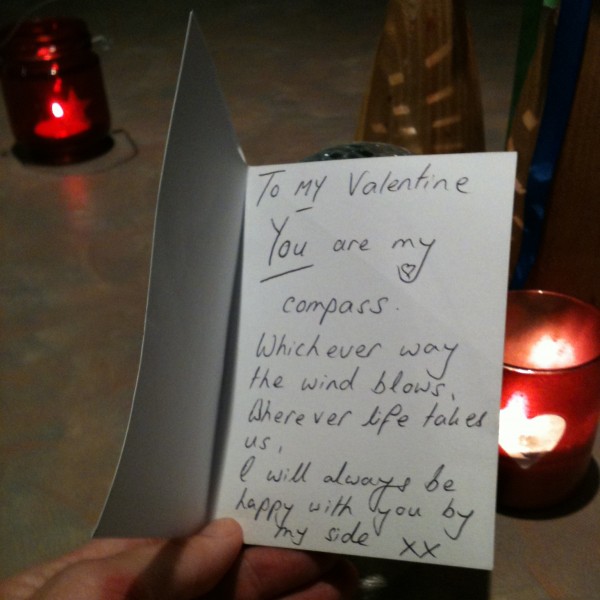 To MY Valentine
You are my
compass.
Whichever way
the wind blows,
Wherever life takes
us,
I will always be
happy with you by
my side xx